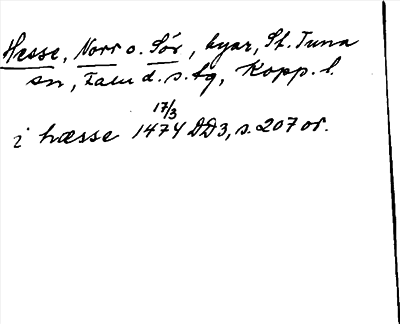 Hesse, Norr o. Sör, byar, St. Tuna
sn, Falu d. s. tg, Kopp. l.
17/3
i hæsse 1474 DD3, s. 207 or.